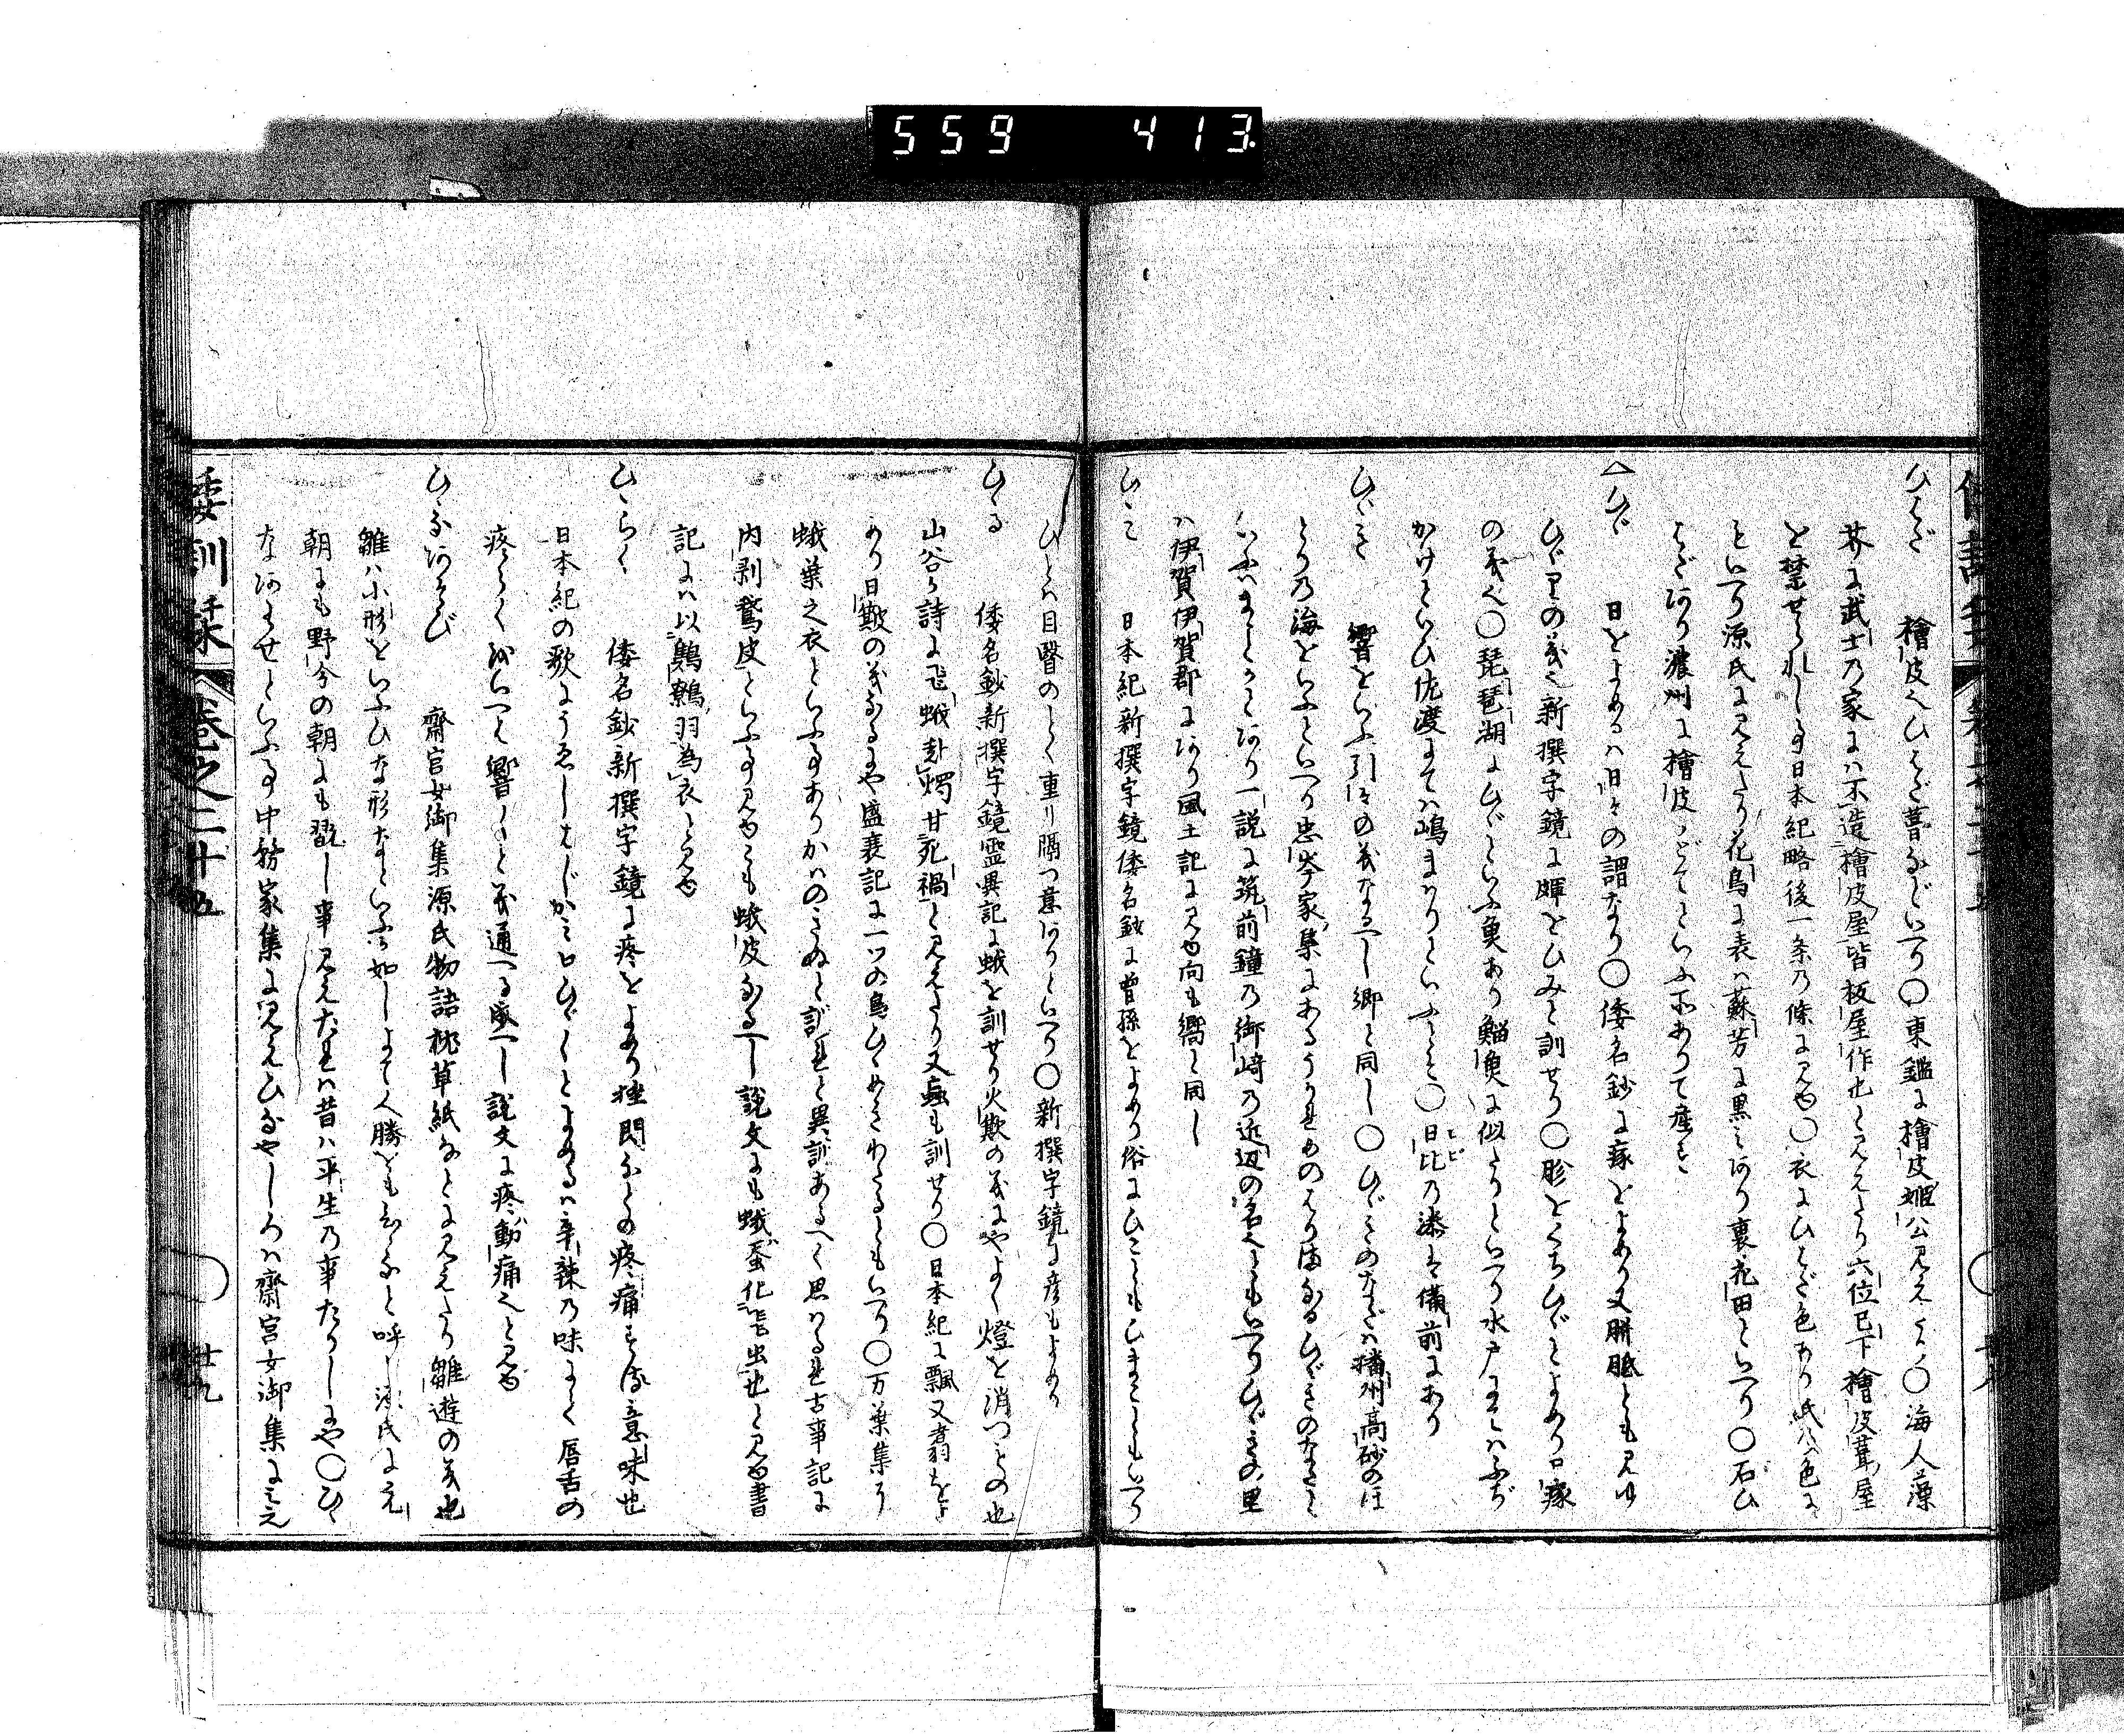 559 413
ひはだ 檜皮也ひはだ葺などいへり〇東鑑に檜皮姫公見えたり〇海人藻
芥に武士の家には不造檜皮屋皆板屋作也と見えたり六位已下檜皮葺屋
を禁せられし事日本紀略後一条の條に見ゆ〇衣にひはだ色あり紙にも色に
といへり源氏に見えたり花鳥に表は蘇芳に黒みあり裏花田といへり〇石ひ
はだあり濃州に檜皮とてといふ所ありて産す
ひゞ 日をよめるは日々の謂なり〇倭名鈔に瘃をよめり又胼胝とも見ゆ
ひゞりの義也新撰字鏡に皹をひみと訓せり〇胗をくちひゞとよめり口瘃
の義也〇琵琶湖にひゞといふ魚あり鯔魚に似たりといへり水戸にてはふぢ
かけといひ佐渡にては嶋まわりといふとそ〇日比の湊は備前にあり
ひゞき 響をいふ引々の義なるべし郷と同し〇ひゞきのなだは播州高砂のほ
とりの海をいふといへり忠岑家集にあるうきものはり海なるひゞきのなだと
いふはまことにあり一説に筑前鐘の御崎の近辺の名也ともいへりひゞきの里
は伊賀伊賀郡にあり風土記に見ゆ向も嚮と同し
ひゝこ 日本紀新撰字鏡倭名鈔に曾孫をよめり俗にひことも ひまこともいへり
ひとは目瞖のとく重り隔つ意ありといへり〇新撰字鏡に彦もよめり
ひゝる 倭名鈔新撰字鏡霊異記に蛾を訓せり火歎の義にやよく燈を消つもの也
山谷か詩に飛蛾赴燭甘死禍と見えたり又蟲も訓せり〇日本紀に飄又翥をよ
めり日歎の義なるにや盛衰記に一つの鳥ひゝめきわたるともいへり〇万葉集に
蛾葉之衣といふ事ありかはのきぬと訓れと異訓あるべく思はるれ古事記に
内剥鵞皮といふ事見ゆとも蛾皮なるべし説文にも蛾蚕化飛出也と見ゆ書
記には以鷦鷯羽為衣と見ゆ
ひゝらく 倭名鈔新撰字鏡に疼をよめり挫閃などの疼痛する意味也
日本紀の歌にうゑしはじかみ口ひゞくとよめるは辛辣の味にて唇舌の
疼らくをいへり響くと義通へる成べし説文に疼動痛也と見ゆ
ひゝなあそび 齋宮女御集源氏物語枕草紙などに見えたり雛遊の義也
雛は小形をいふひな形などいふか如しよて人勝をもひゝなと呼し源氏に元
朝にも野分の朝にも翫し事見えたれは昔は平生の事たりしにや〇ひゝ
なあはせといふ事中務家集に見えひなやしろは齋宮女御集に見え
倭訓栞 巻之二十五 廿九